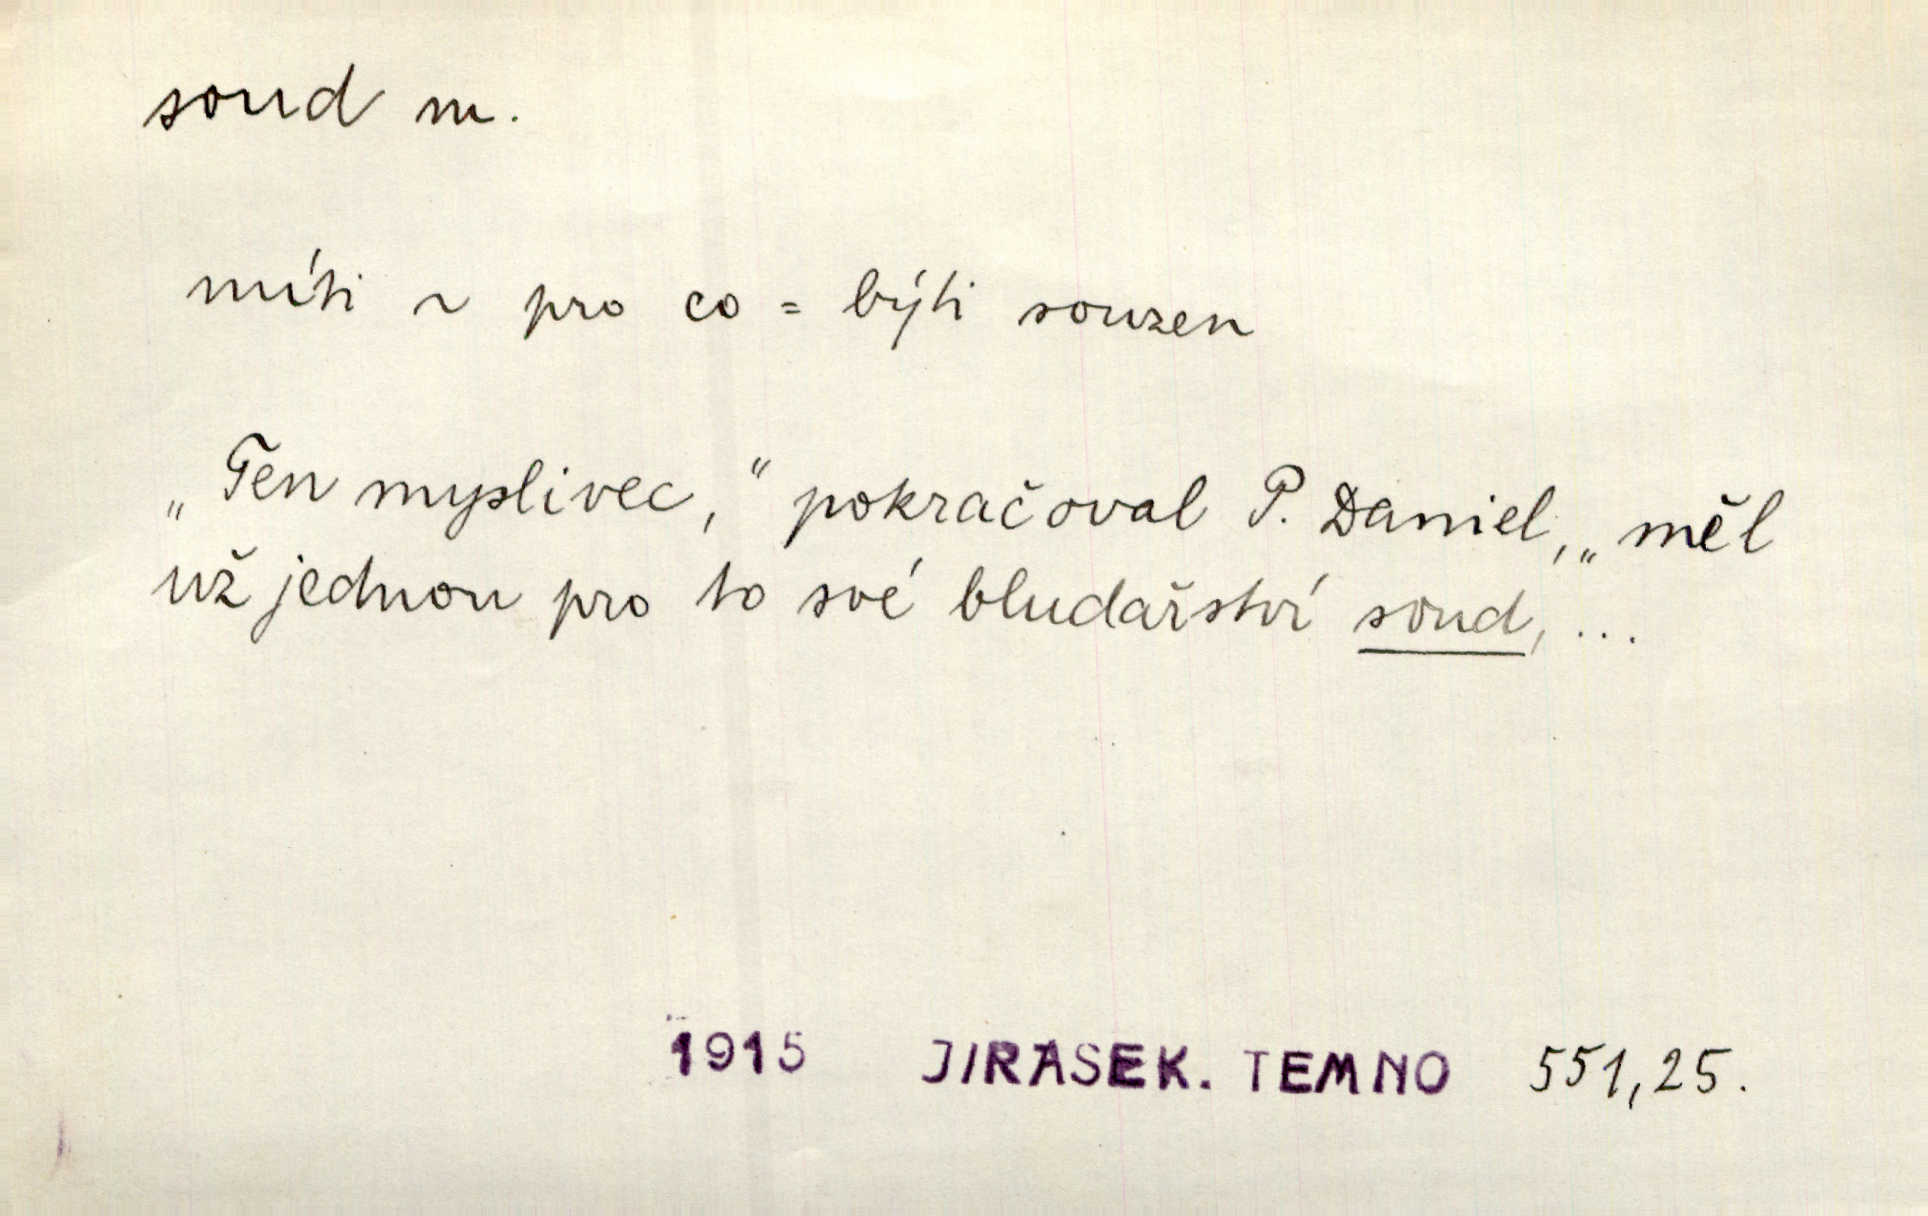 soud m.
míti ~ pro co = býti souzen
„Ten myslivec,“ pokračoval P. Daniel, „měl
už jednou pro to své bludařství soud, ...
1915 JIRASEK. TEMNO 551,25.